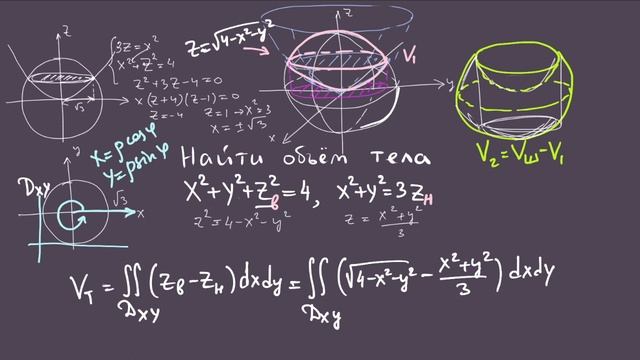 z
3z=x²
x²+z²=4
z²+3z-4=0
x (z+4)(z-1)=0
z=-4 z=1→x²=3
x=±√3
√3
z=√4-x²-y²
z
V₁
y
x
V₂=Vш-V₁
x=ρcosφ
y=ρsinφ
Dxy
y
√3
x
Найти объём тела
x²+y²+z²в=4, x²+y²=3zн
z²=4-x²-y² z=x²+y²/3
Vт=∬(zв-zн)dxdy=∬(√4-x²-y²-x²+y²/3)dxdy
Dxy Dxy